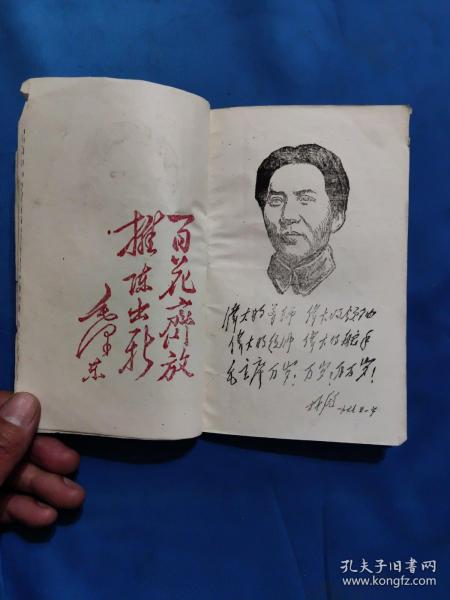 百花齊放
推陈出新
毛澤东
偉大的导师 偉大的领袖
偉大的统帅 偉大的舵手
毛主席万岁！万岁！万万岁！
林彪
孔夫子旧书网
www.kongfz.com